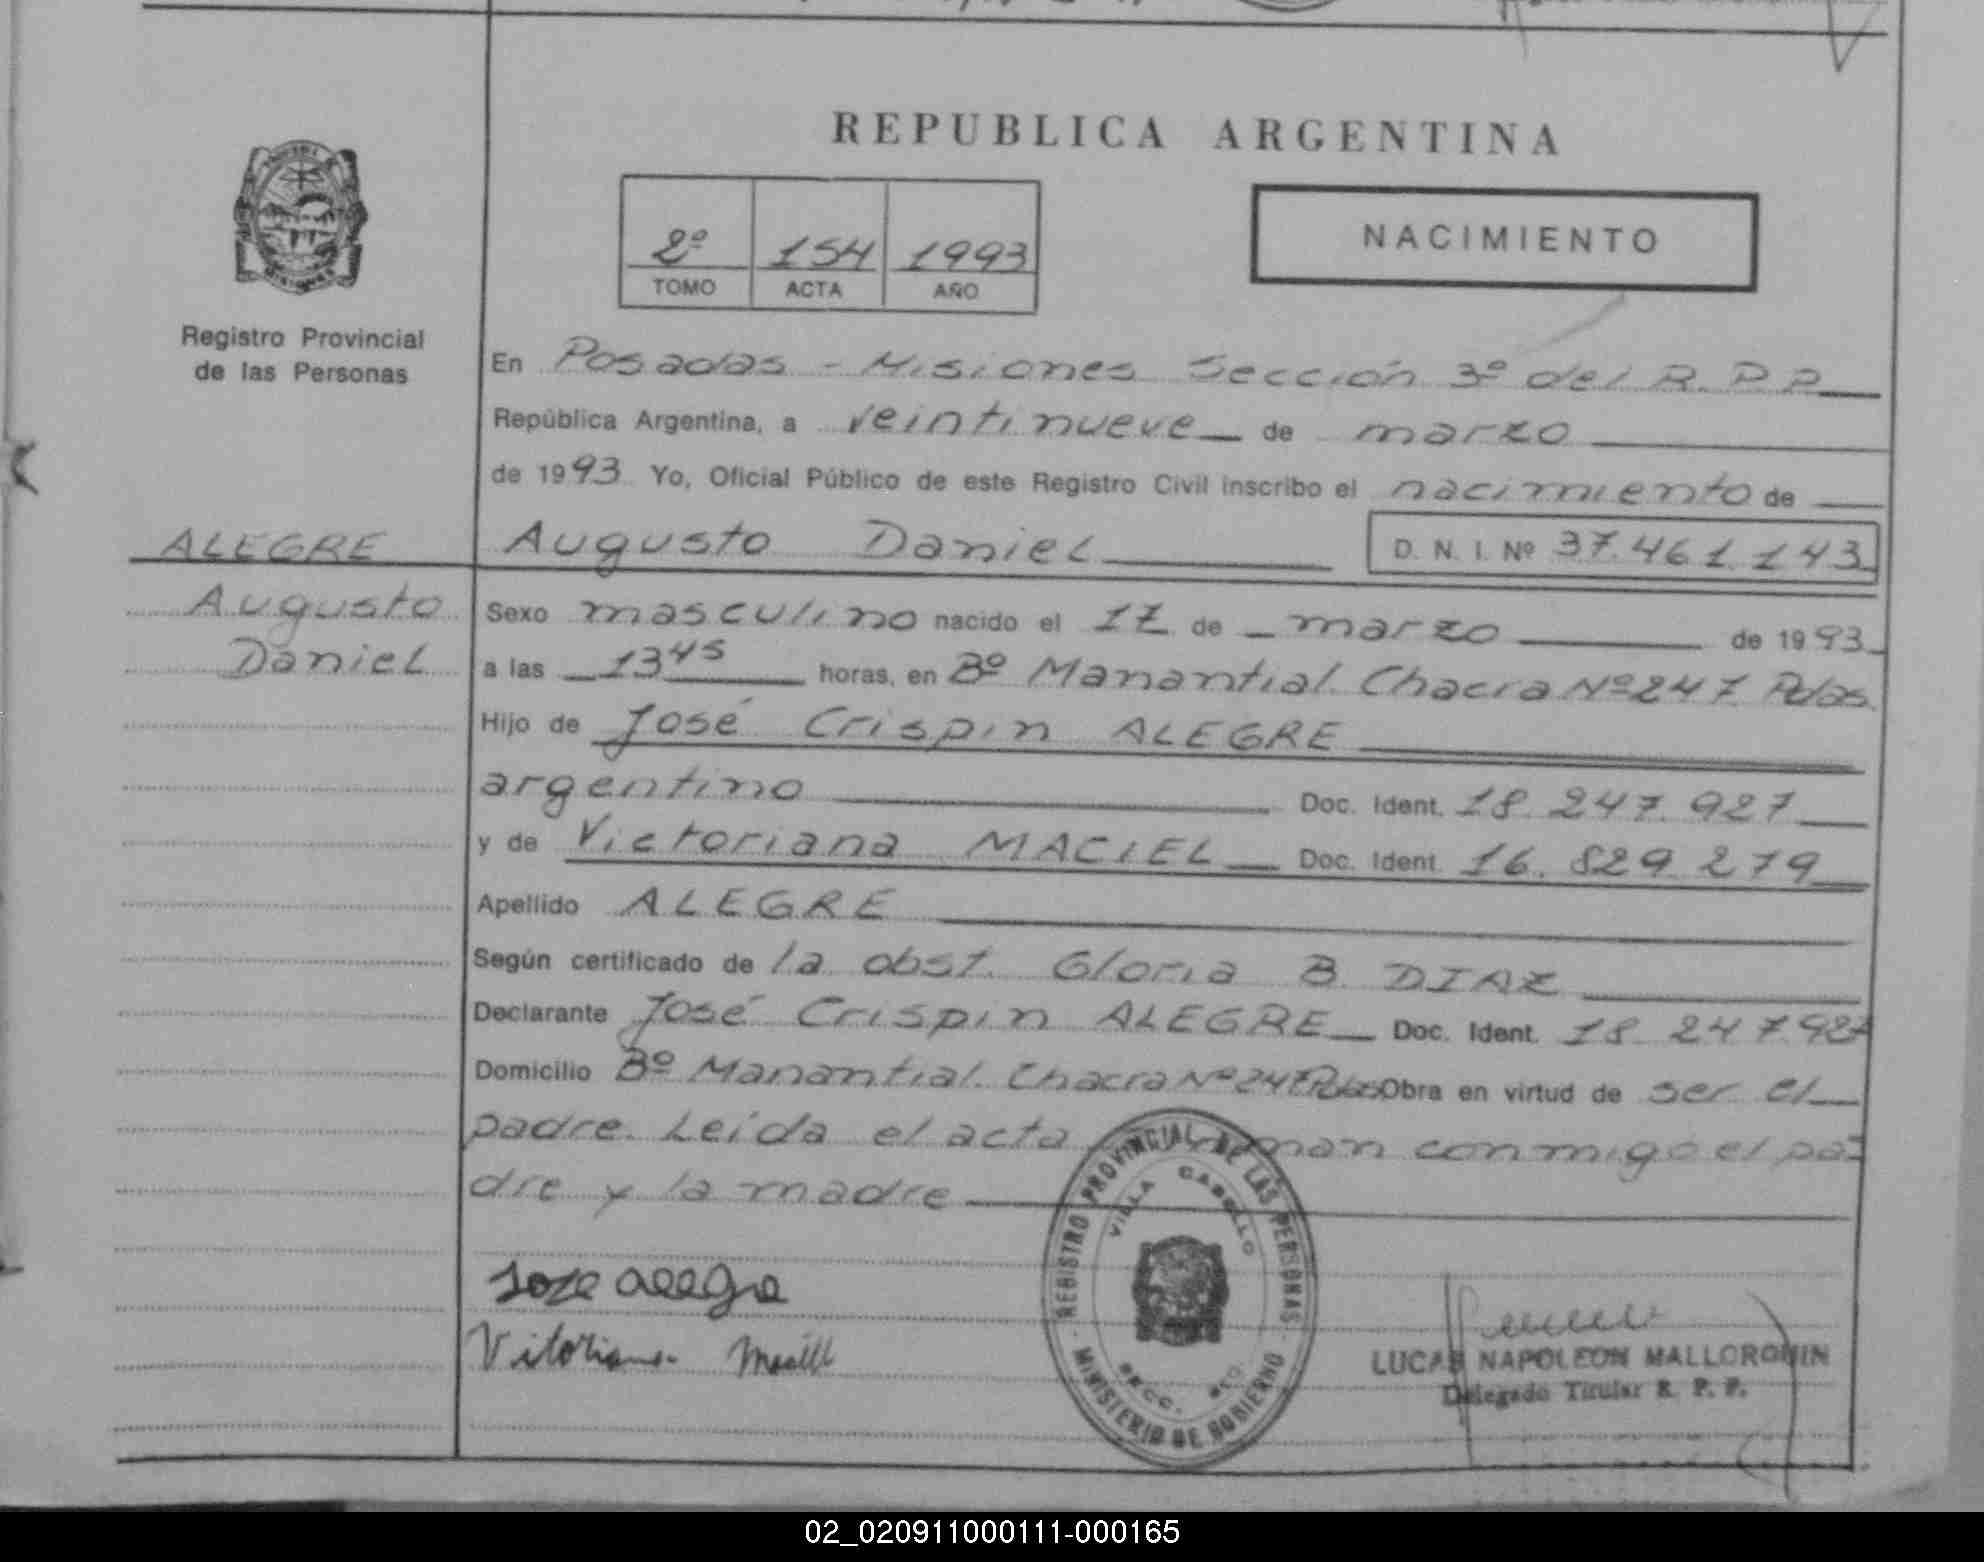 REPUBLICA ARGENTINA
2º 154 1993
TOMO ACTA AÑO
NACIMIENTO
Registro Provincial
de las Personas
En Posadas - Misiones Sección 3º del R. P. P.
República Argentina, a veintinueve de marzo
de 1993 Yo, Oficial Público de este Registro Civil inscribo el nacimiento de
ALEGRE Augusto Daniel D. N. I. Nº 37.461.143
Augusto
Daniel
Sexo masculino nacido el 17 de marzo de 1993
a las 13 45 horas, en Bº Manantial. Chacra Nº 247 Pdas.
Hijo de José Crispin ALEGRE
argentino Doc. Ident. 18.247.927
y de Victoriana MACIEL Doc. Ident. 16.829.279
Apellido ALEGRE
Según certificado de la obst. Gloria B. DIAZ
Declarante José Crispin ALEGRE Doc. Ident. 18.247.927
Domicilio Bº Manantial. Chacra Nº 247 Pdas Obra en virtud de ser el
padre. Leida el acta conmigo el pa=
dre y la madre
REGISTRO PROVINCIAL DE LAS PERSONAS
MINISTERIO DE GOBIERNO
VILLA CABELLO
SECC.
Jose alegre
Vitoriana
LUCAS NAPOLEON MALLORQUIN
Delegado Titular R. P. P.
02_020911000111-000165